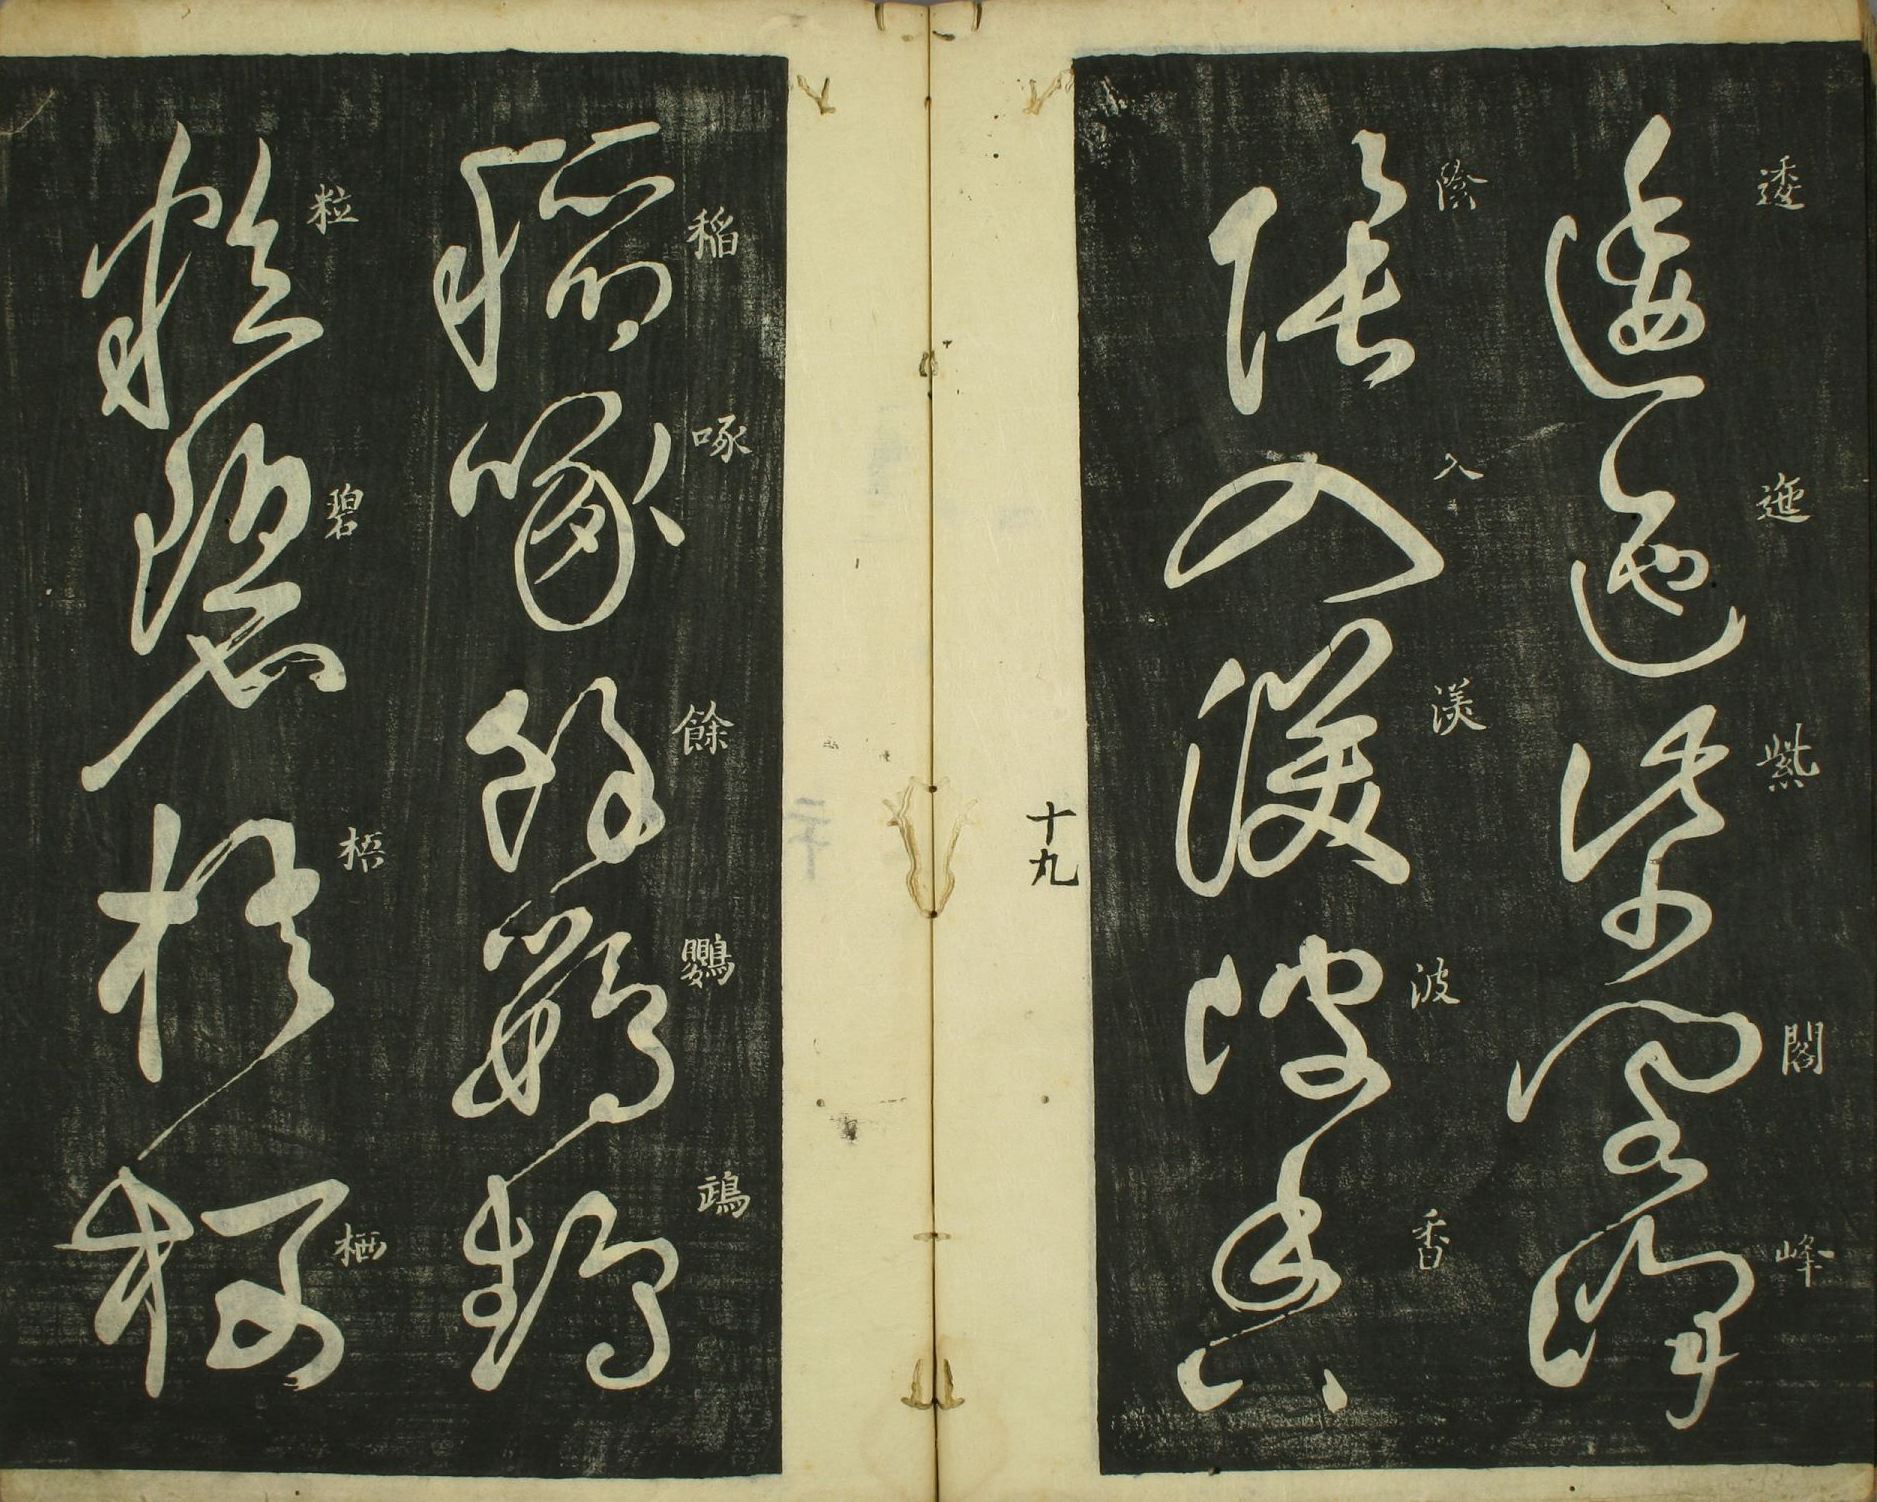 逶迤紫閣峰
陰入渼波香
十九
稲啄餘鸚鵡
粒碧梧栖